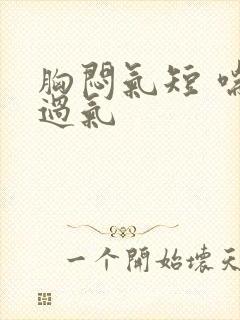 胸悶氣短 喘
過氣
一个開始壞天